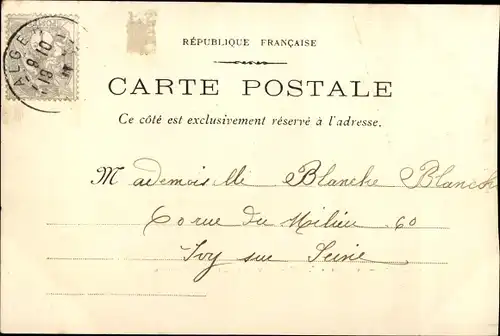 ALGE
RÉPUBLIQUE FRANÇAISE
CARTE POSTALE
Ce côté est exclusivement réservé à l'adresse.
Mademoiselle Blanche Blanch
60 rue du Milieu 60
Ivy sur Seine